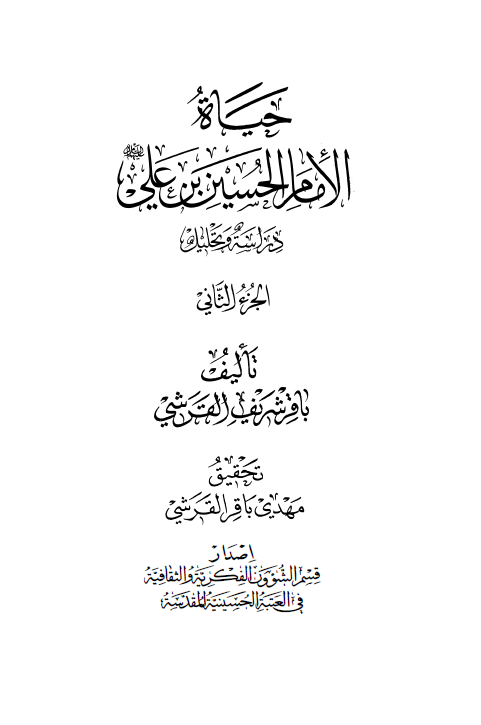 حَيَاةُ
الإمَامِ الحُسَيْنِ بْنِ عَلِيٍّ
دِرَاسَةٌ وَتَحْلِيلٌ
الجُزْءُ الثَّانِي
تَأْلِيفُ
بَاقِر شَرِيفِ القَرَشِي
تَحْقِيقُ
مَهْدِي بَاقِر القَرَشِي
إصْدَار
قِسْمِ الشُّؤُونِ الفِكْرِيَّةِ وَالثَّقَافِيَّةِ
فِي العَتَبَةِ الحُسَيْنِيَّةِ المُقَدَّسَةِ